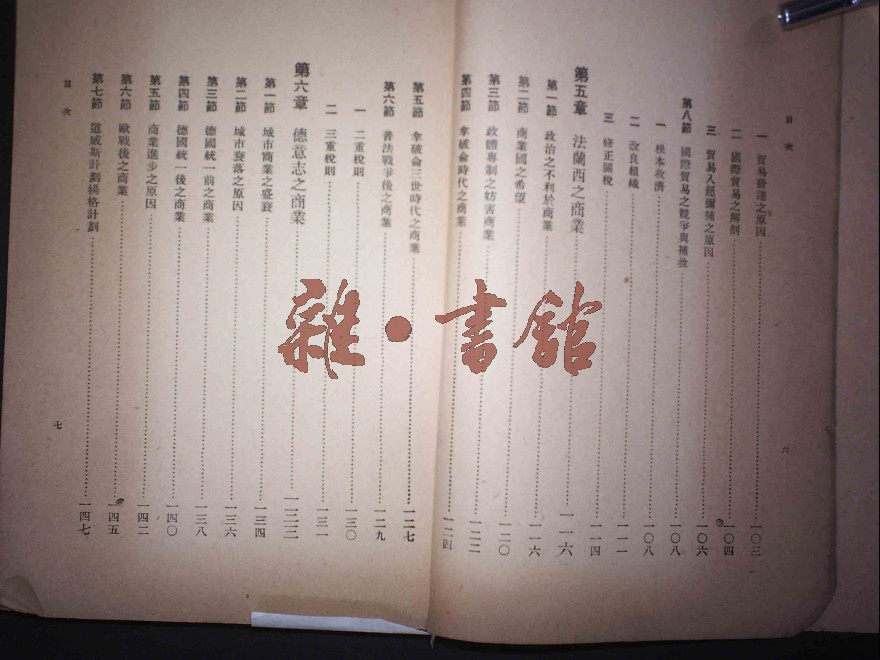 目次
一 貿易發達之原因 一〇三
二 國際貿易之解剖 一〇四
三 貿易入超彌補之原因 一〇六
第八節 國際貿易之競爭與補救 一〇八
一 根本救濟 一〇八
二 改良組織 一一一
三 修正關稅 一一四
第五章 法蘭西之商業 一一六
第一節 政治之不利於商業 一一六
第二節 商業國之希望 一二〇
第三節 政體專制之妨害商業 一二二
第四節 拿破侖時代之商業 一二四
六
第五節 拿破侖三世時代之商業 一二七
第六節 普法戰爭後之商業 一二九
一 二重稅則 一三〇
二 三重稅則 一三一
第六章 德意志之商業 一三三
第一節 城市商業之盛衰 一三四
第二節 城市衰落之原因 一三六
第三節 德國統一前之商業 一三八
第四節 德國統一後之商業 一四〇
第五節 商業進步之原因 一四二
第六節 歐戰後之商業 一四五
第七節 道威斯計劃楊格計劃 一四七
目次
七
雜·書館